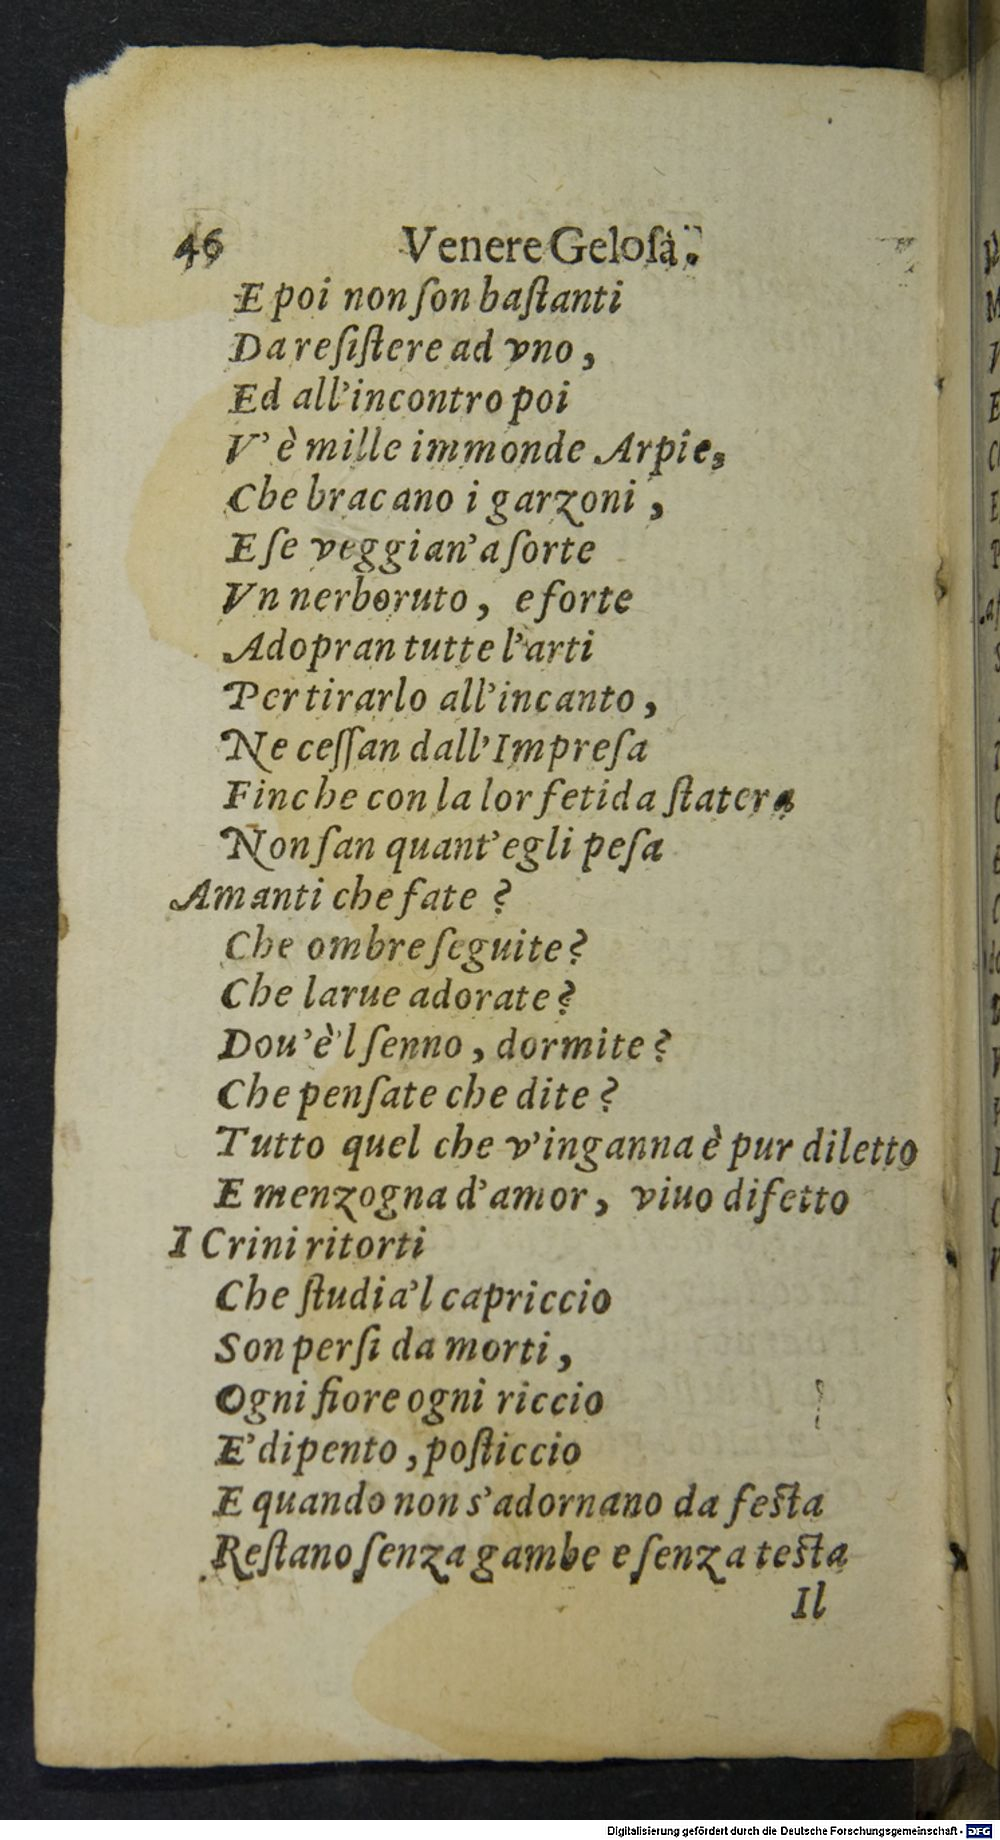 46 Venere Gelosa.
E poi non ſon baſtanti
Da reſiſtere ad vno,
Ed all'incontro poi
V' è mille immonde Arpie,
Che bracano i garzoni,
E ſe veggian' a ſorte
Vn nerboruto, e forte
Adopran tutte l'arti
Per tirarlo all'incanto,
Ne ceſſan dall'Impreſa
Finche con la lor fetida ſtatera
Non ſan quant'egli peſa
Amanti che fate ?
Che ombre ſeguite?
Che larue adorate?
Dou'è'l ſenno, dormite?
Che penſate che dite?
Tutto quel che v'inganna è pur diletto
E menzogna d'amor, viuo difetto
I Crini ritorti
Che ſtudia'l capriccio
Son perſi da morti,
Ogni fiore ogni riccio
E' dipento, poſticcio
E quando non s'adornano da feſta
Reſtano ſenza gambe e ſenza teſta
Il
Digitalisierung gefördert durch die Deutsche Forschungsgemeinschaft - DFG